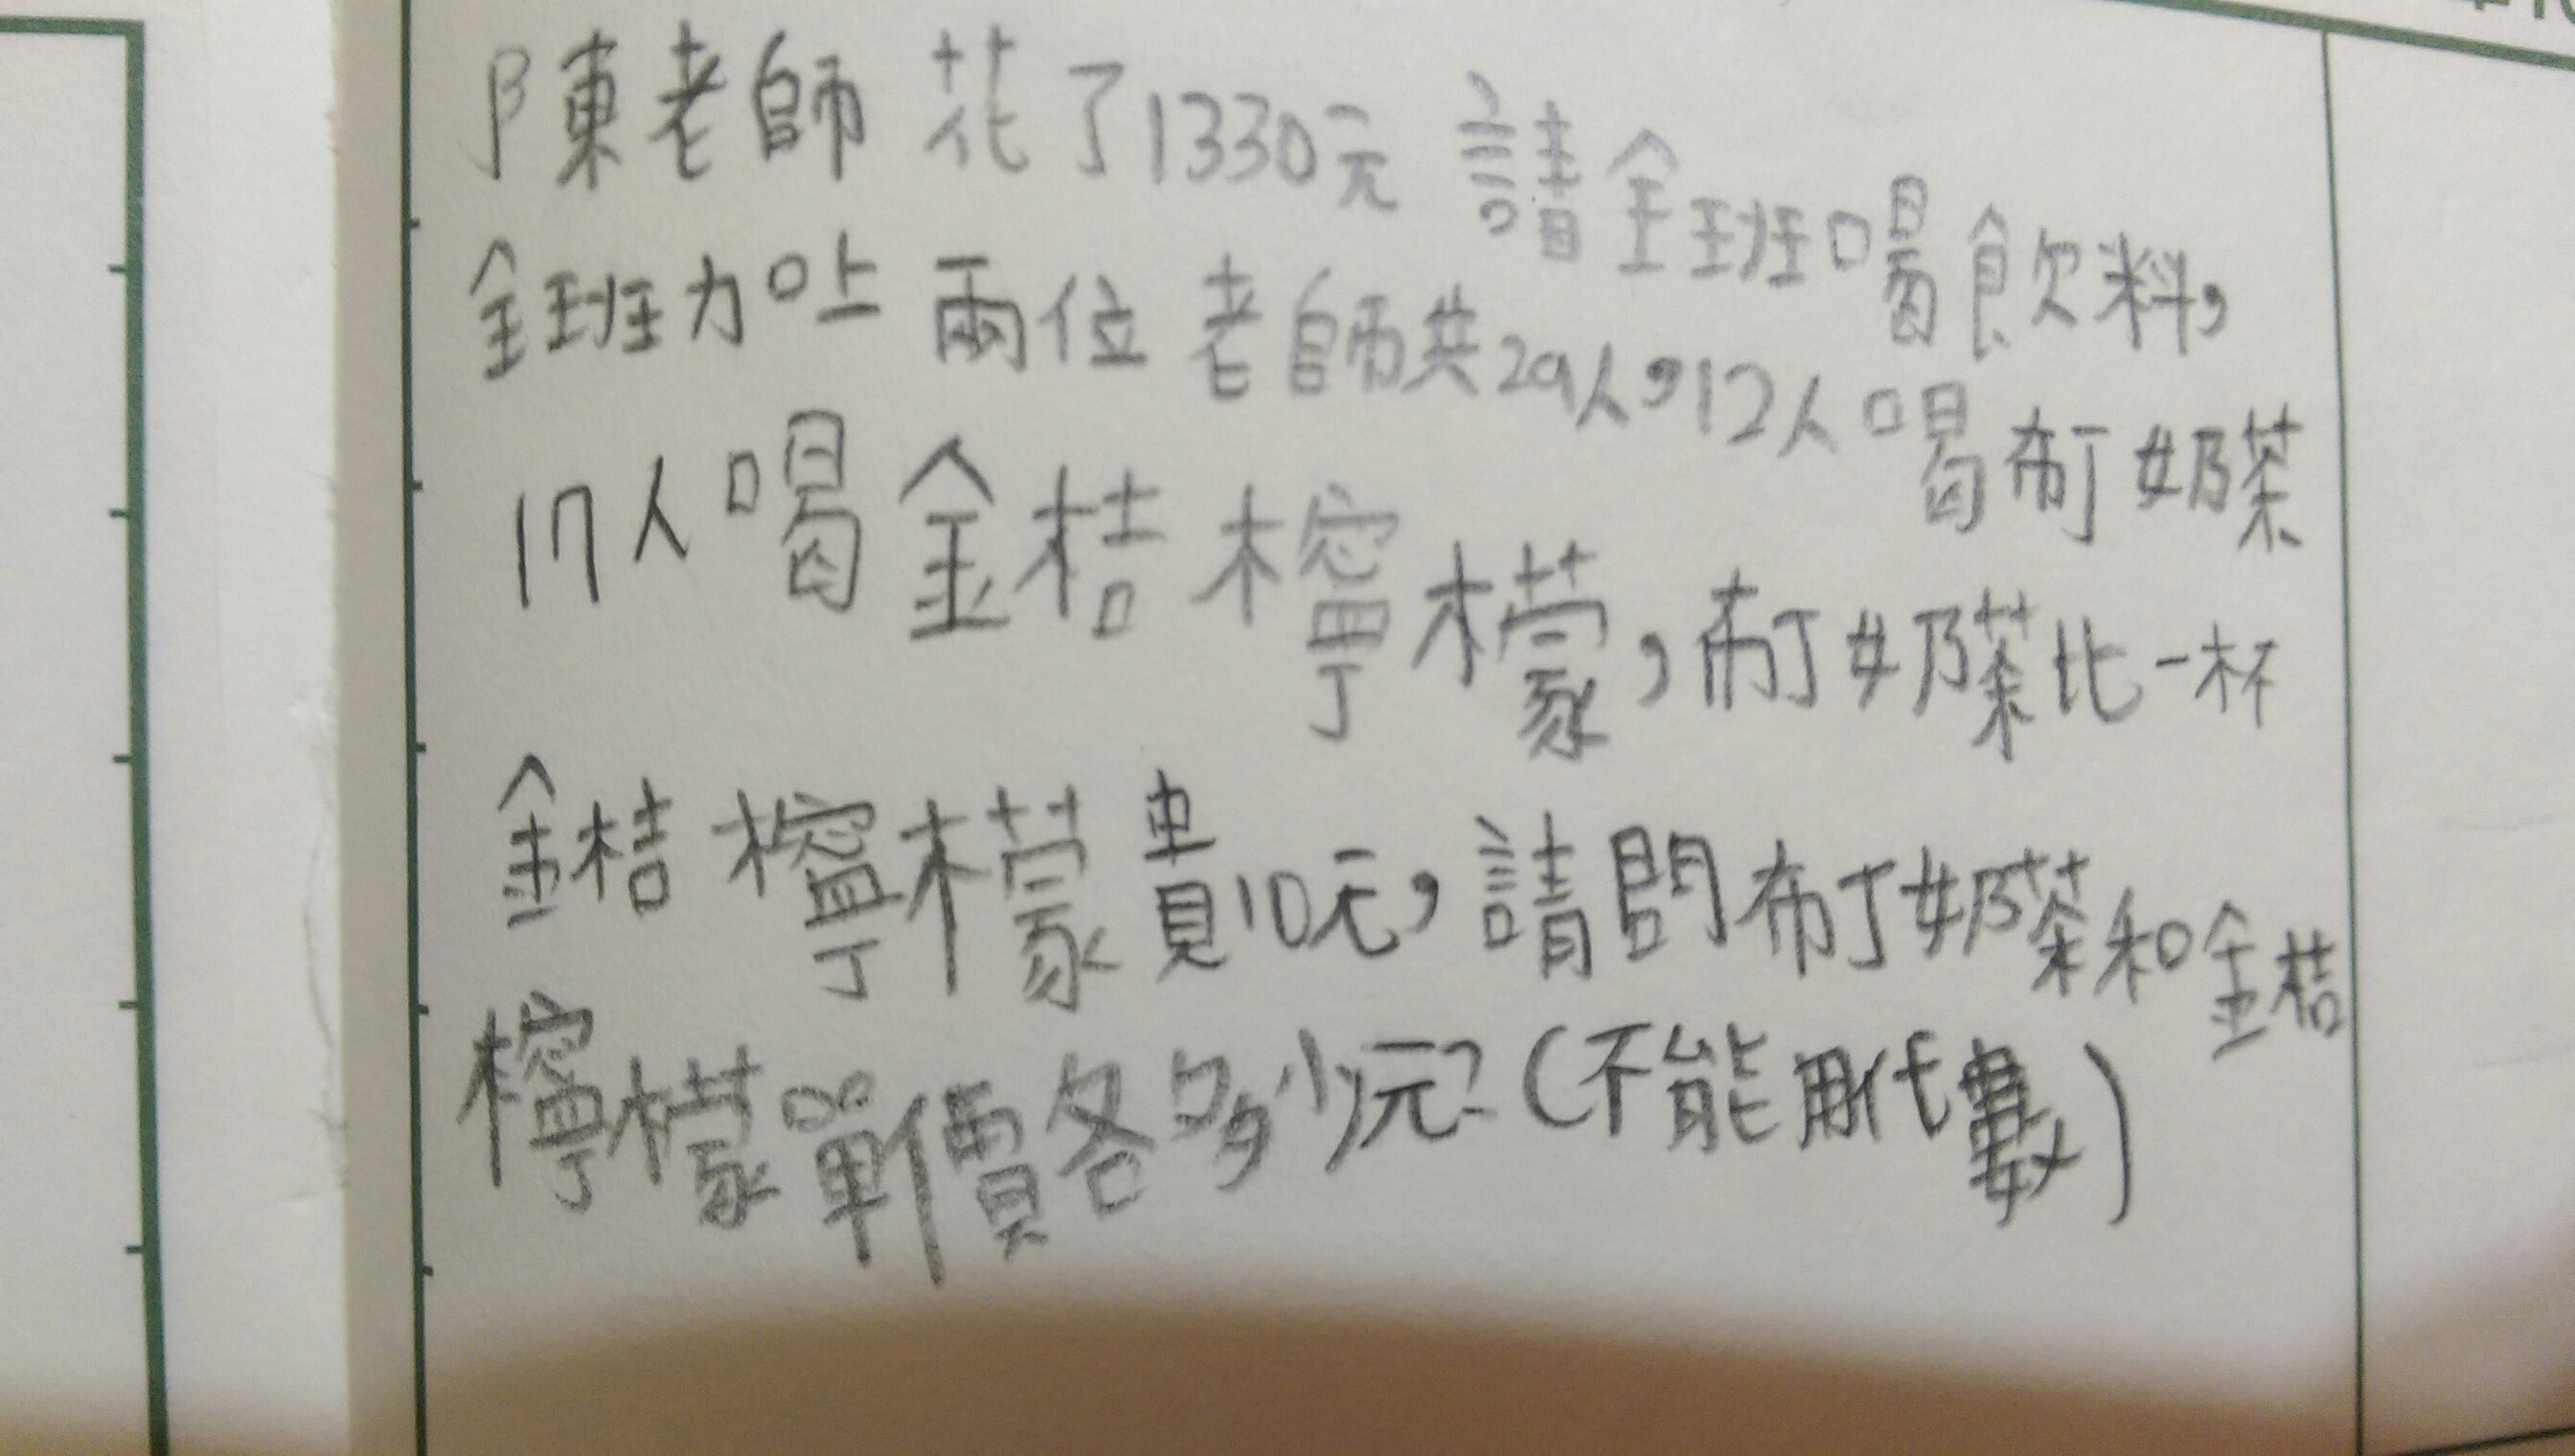 陳老師花了1330元請全班喝飲料,
全班加上兩位老師共29人,12人喝布丁奶茶
17人喝金桔檸檬,布丁奶茶比一杯
金桔檸檬貴10元,請問布丁奶茶和金桔
檸檬單價各多少元?(不能用代數)